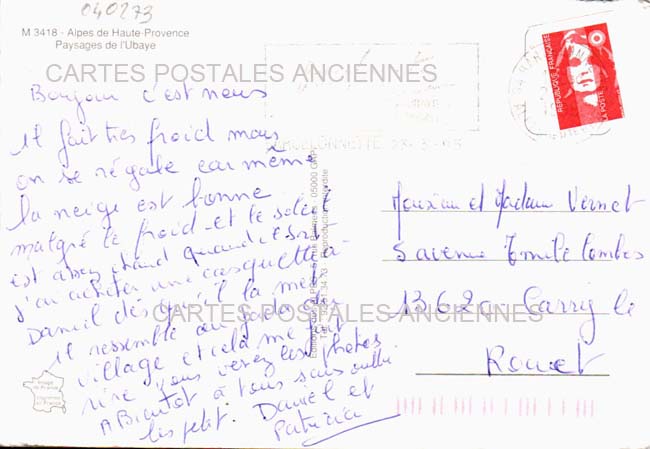 040273
M 3418 - Alpes de Haute-Provence
Paysages de l'Ubaye
CARTES POSTALES ANCIENNES
Bonjour c'est nous
il fait très froid mais
on se régale car même
la neige est bonne
malgré le froid et le soleil
est assez chaud quand il sort
j'ai acheter une casquette à
Daniel dès qu'il la met
il ressemble au
village et cela me fait
rire vous verez les photos
A Bientot à tous sans oublier
les petit. Daniel et
Patricia
BARCELONNETTE
RÉPUBLIQUE FRANÇAISE
LA POSTE
Monsieur et Madame Vernet
5 avenue Emile Combes
13620 Carry le
Rouet
CARTES POSTALES ANCIENNES
05000 GAP
Reproduction interdite
image
de France